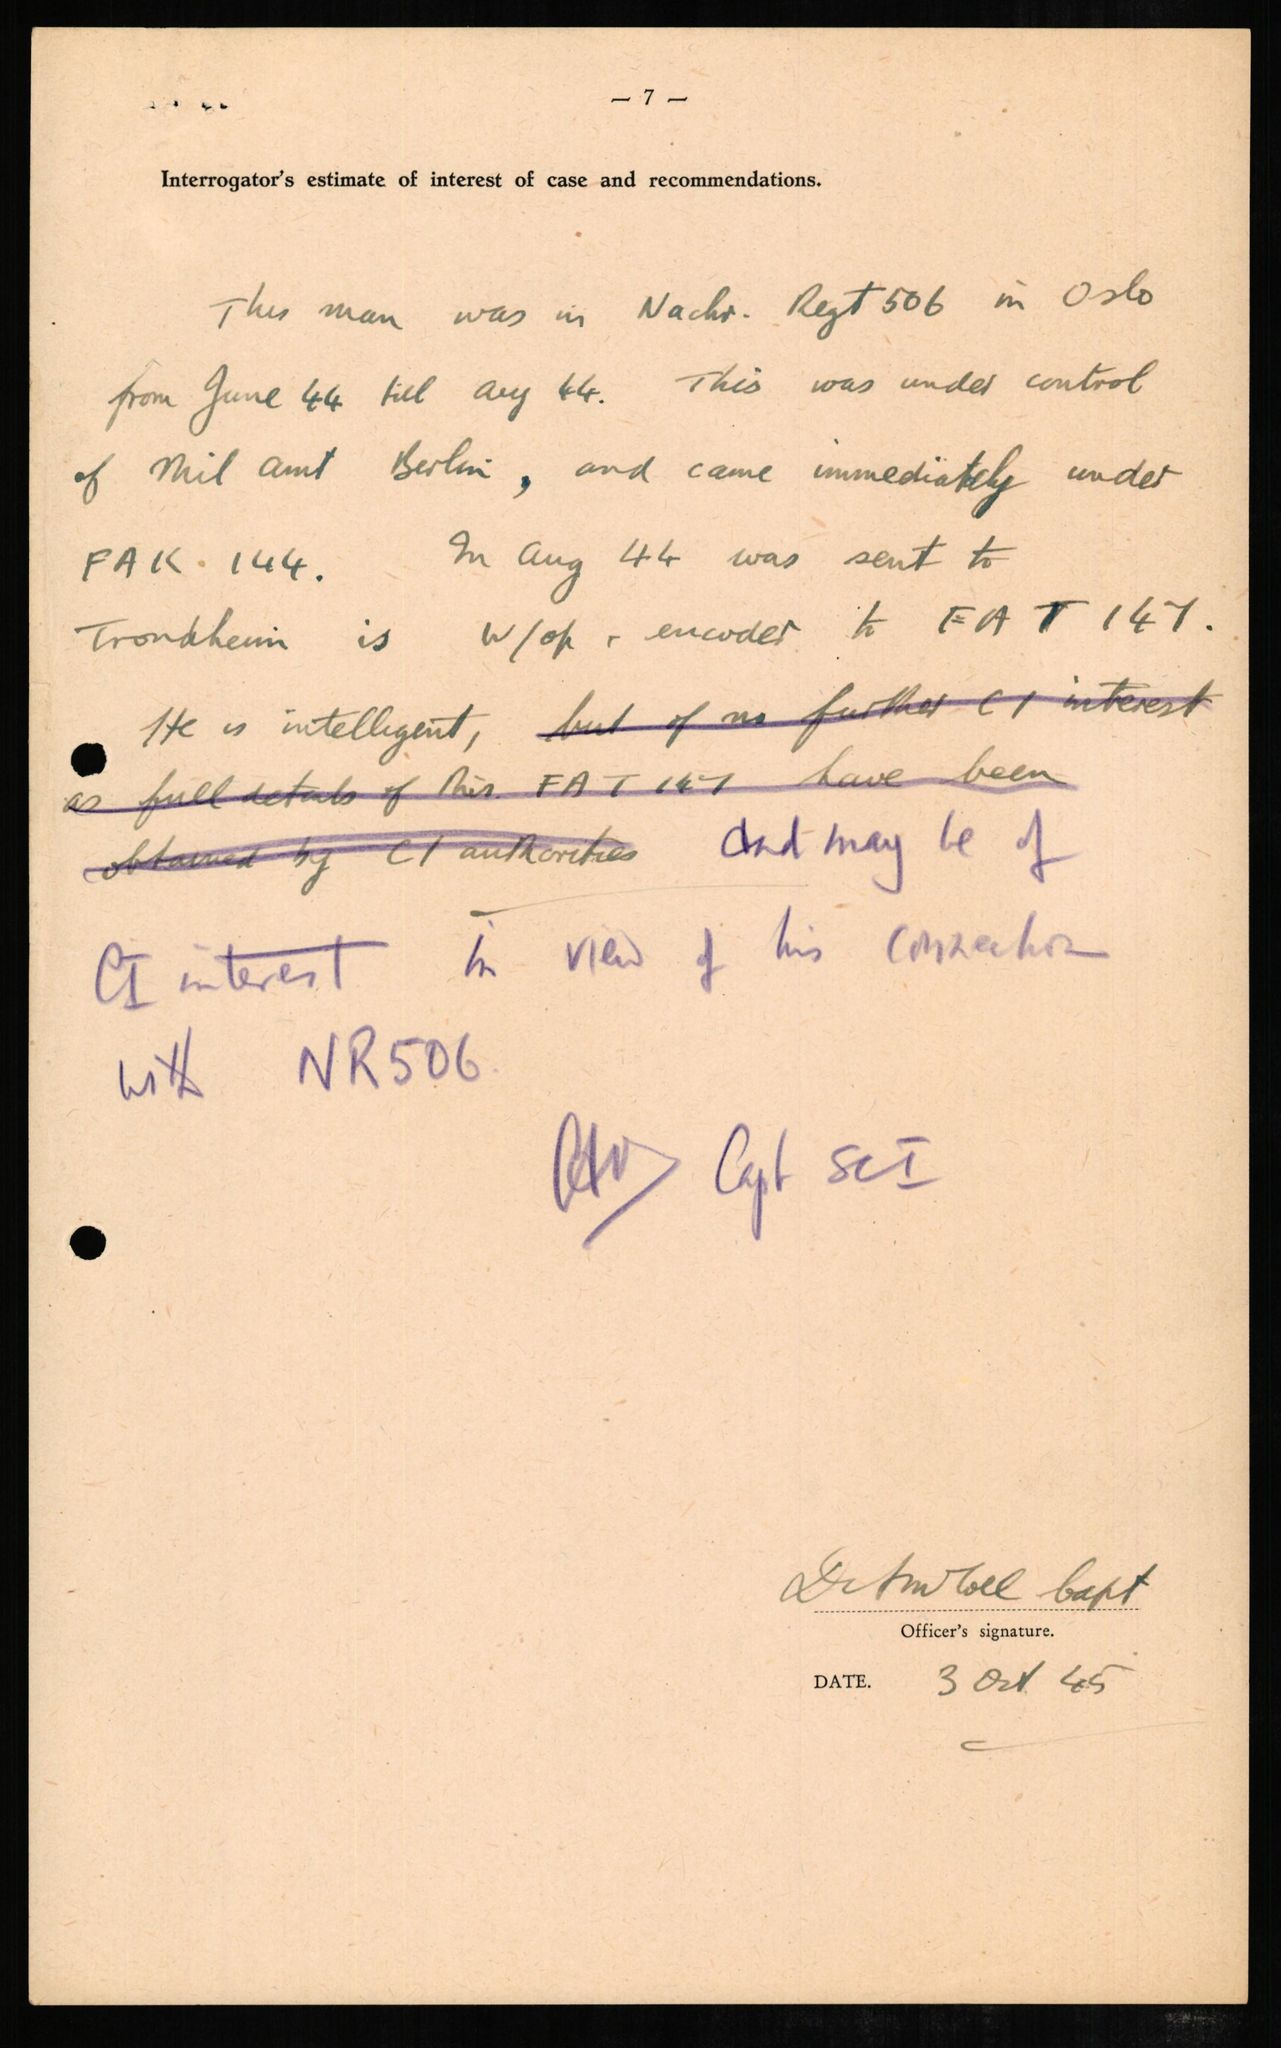 — 7 —
Interrogator's estimate of interest of case and recommendations.
This man was in Nachr. Regt 506 in Oslo
from June 44 till Aug 44. This was under control
of Mil Amt Berlin, and came immediately under
FAK. 144. In Aug 44 was sent to
Trondheim is W/op + encoder to FAT 147.
He is intelligent, but of no further CI interest
as full details of this FAT 147 have been
obtained by CI authorities And may be of
CI interest in view of his connection
with NR506.
Capt SCI
Capt
Officer's signature.
DATE. 3 Oct 45